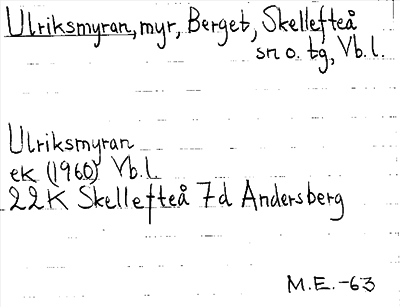 Ulriksmyran, myr, Berget, Skellefteå
sn o. tg, Vb.l.
Ulriksmyran
ek (1960) Vb.l.
22K Skellefteå 7d Andersberg
M.E.-63